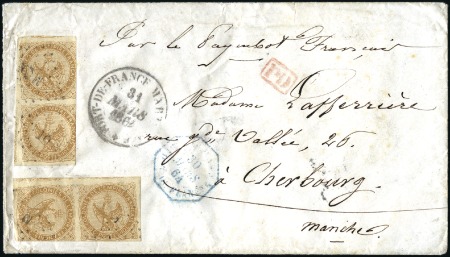 Par le Paquebot Français
P.D.
FORT-DE-FRANCE MART
31
MARS
1864
Madame Lafferrière
rue gde Vallée, 26.
à Cherbourg.
manche